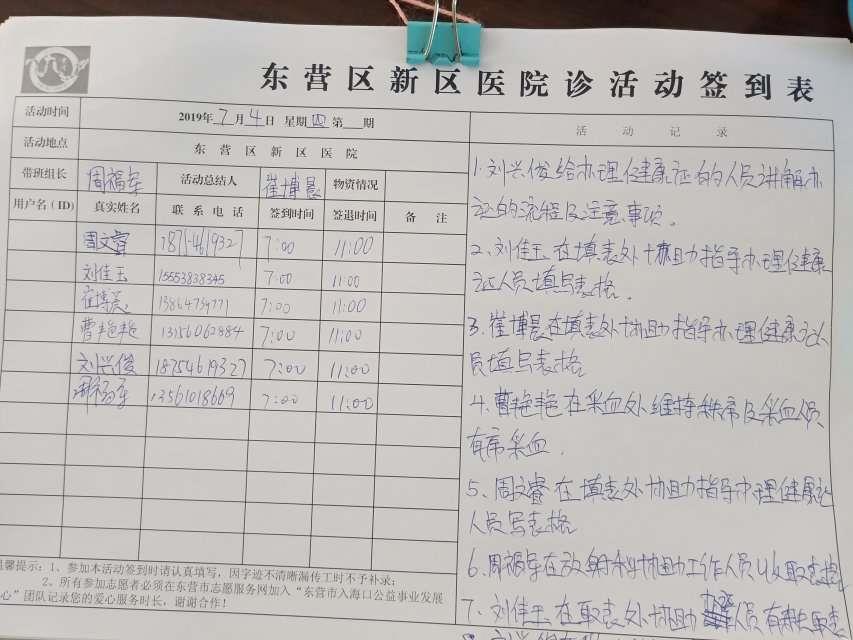 东营区新区医院诊活动签到表
活动时间 2019年7月4日 星期四 第___期
活动地点 东营区新区医院
带班组长 周福军 活动总结人 崔博晨 物资情况
用户名(ID) 真实姓名 联系电话 签到时间 签退时间 备注
周文睿 18754619327 7:00 11:00
刘佳玉 15553838345 7:00 11:00
崔博晨 13864739771 7:00 11:00
曹艳艳 13156062884 7:00 11:00
刘兴俊 18754619327 7:00 11:00
周福军 13561018669 7:00 11:00
温馨提示:1、参加本活动签到时请认真填写,因字迹不清晰漏传工时不予补录;
2、所有参加志愿者必须在东营市志愿服务网加入“东营市入海口公益事业发展
心”团队记录您的爱心服务时长,谢谢合作!
活动记录
1.刘兴俊给办理健康证的人员讲解办
证的流程及注意事项。
2、刘佳玉在填表处协助指导办理健康
证人员填写表格.
3.崔博晨在填表处协助指导办理健康证人
员填写表格
4.曹艳艳在采血处维持秩序及采血人员
有序采血.
5、周文睿在填表处协助指导办理健康证
人员写表格
6、周福军在放射科协助工作人员收取表格
7、刘佳玉在取表处协助 人员有序取表